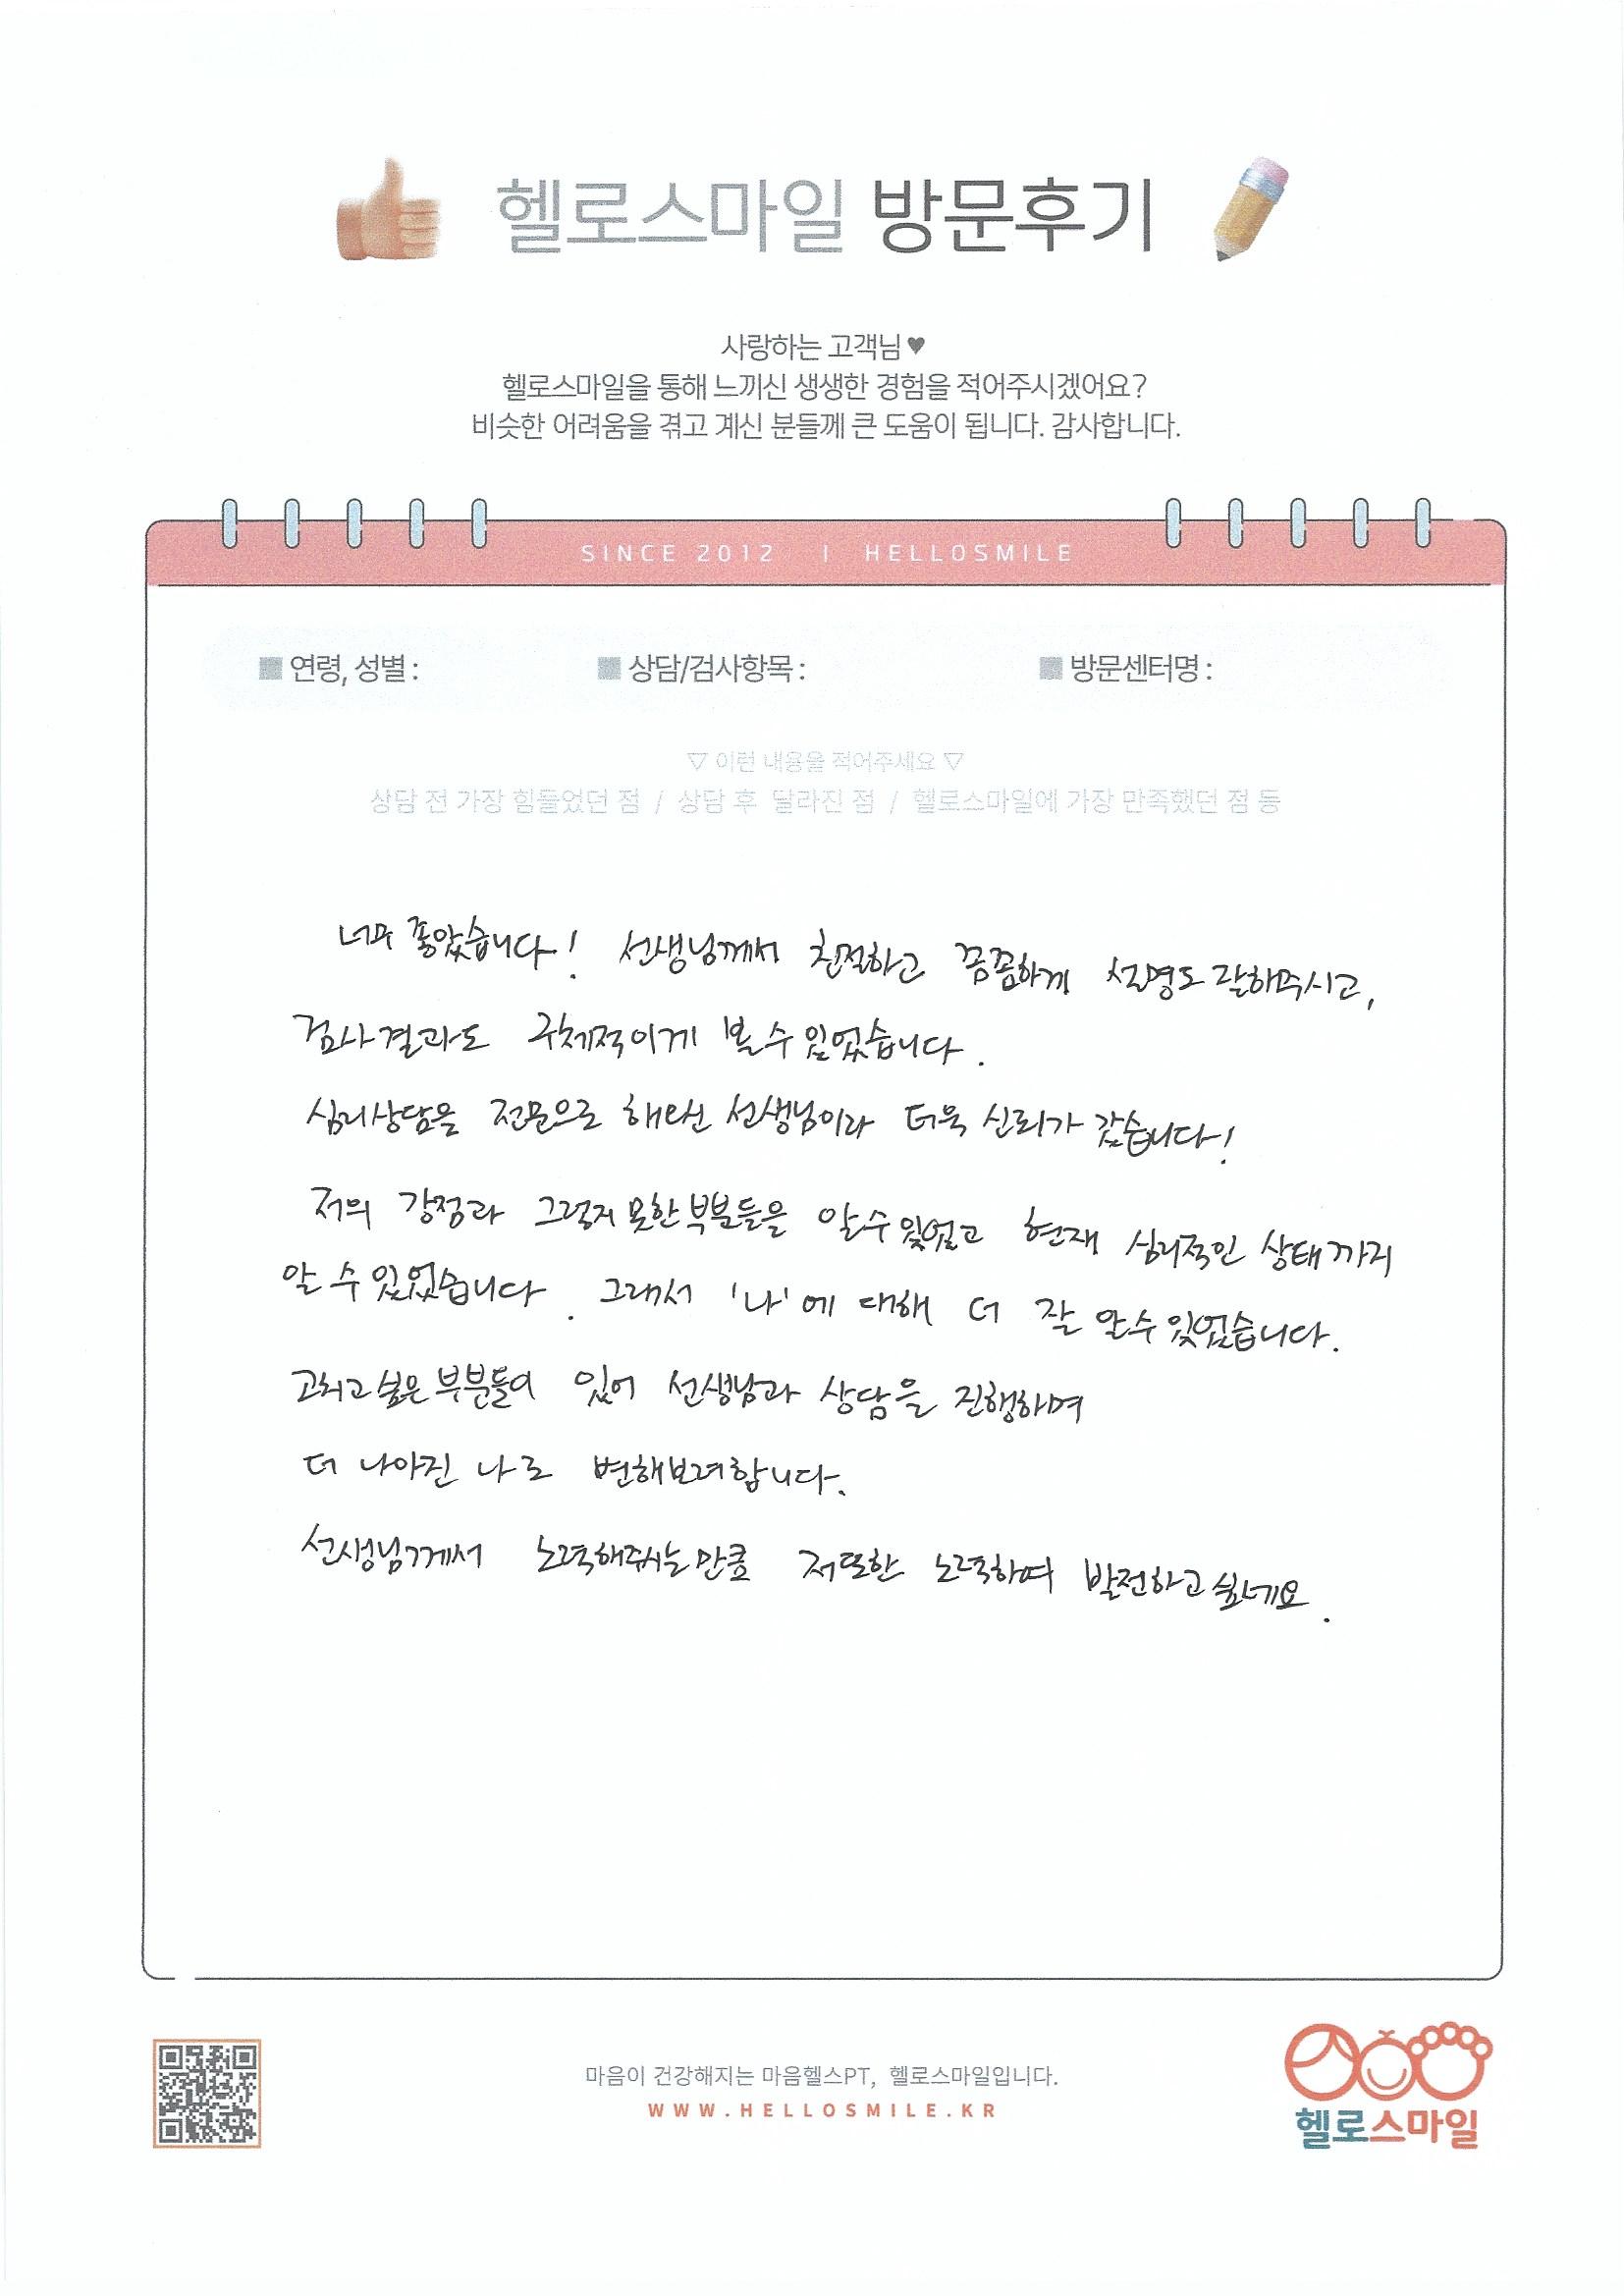 헬로스마일 방문후기
사랑하는 고객님♥
헬로스마일을 통해 느끼신 생생한 경험을 적어주시겠어요?
비슷한 어려움을 겪고 계신 분들께 큰 도움이 됩니다. 감사합니다.
SINCE 2012 | HELLOSMILE
■ 연령, 성별 : ■ 상담/검사항목 : ■ 방문센터명 :
▽ 이런 내용을 적어주세요 ▽
상담 전 가장 힘들었던 점 / 상담 후 달라진 점 / 헬로스마일에 가장 만족했던 점 등
너무 좋았습니다! 선생님께서 친절하고 꼼꼼하게 설명도 잘해주시고,
검사결과도 구체적이게 볼 수 있었습니다.
심리상담을 전문으로 해오신 선생님이라 더욱 신뢰가 갔습니다!
저의 강점과 그렇지 못한 부분들을 알 수 있었고 현재 심리적인 상태까지
알 수 있었습니다. 그래서 '나'에 대해 더 잘 알 수 있었습니다.
고치고 싶은 부분들이 있어 선생님과 상담을 진행하며
더 나아진 나로 변해보려합니다.
선생님께서 노력해주시는 만큼 저 또한 노력하여 발전하고 싶네요.
마음이 건강해지는 마음헬스PT, 헬로스마일입니다.
WWW.HELLOSMILE.KR
헬로스마일